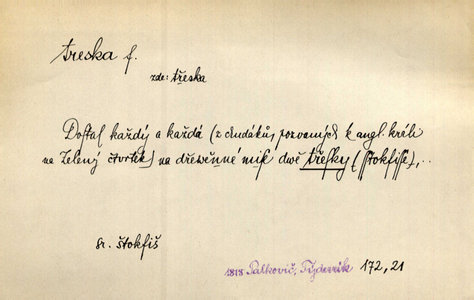 treska f.
zde: třeska
Dostal každý a každá (z chudáků pozvaných k angl. králi
na Zelený čtvrtek) na dřewěnné mise dwě třesky (sstokfisse),..
Sr. štokfiš
1818 Palkovič, Týdenník 172, 21